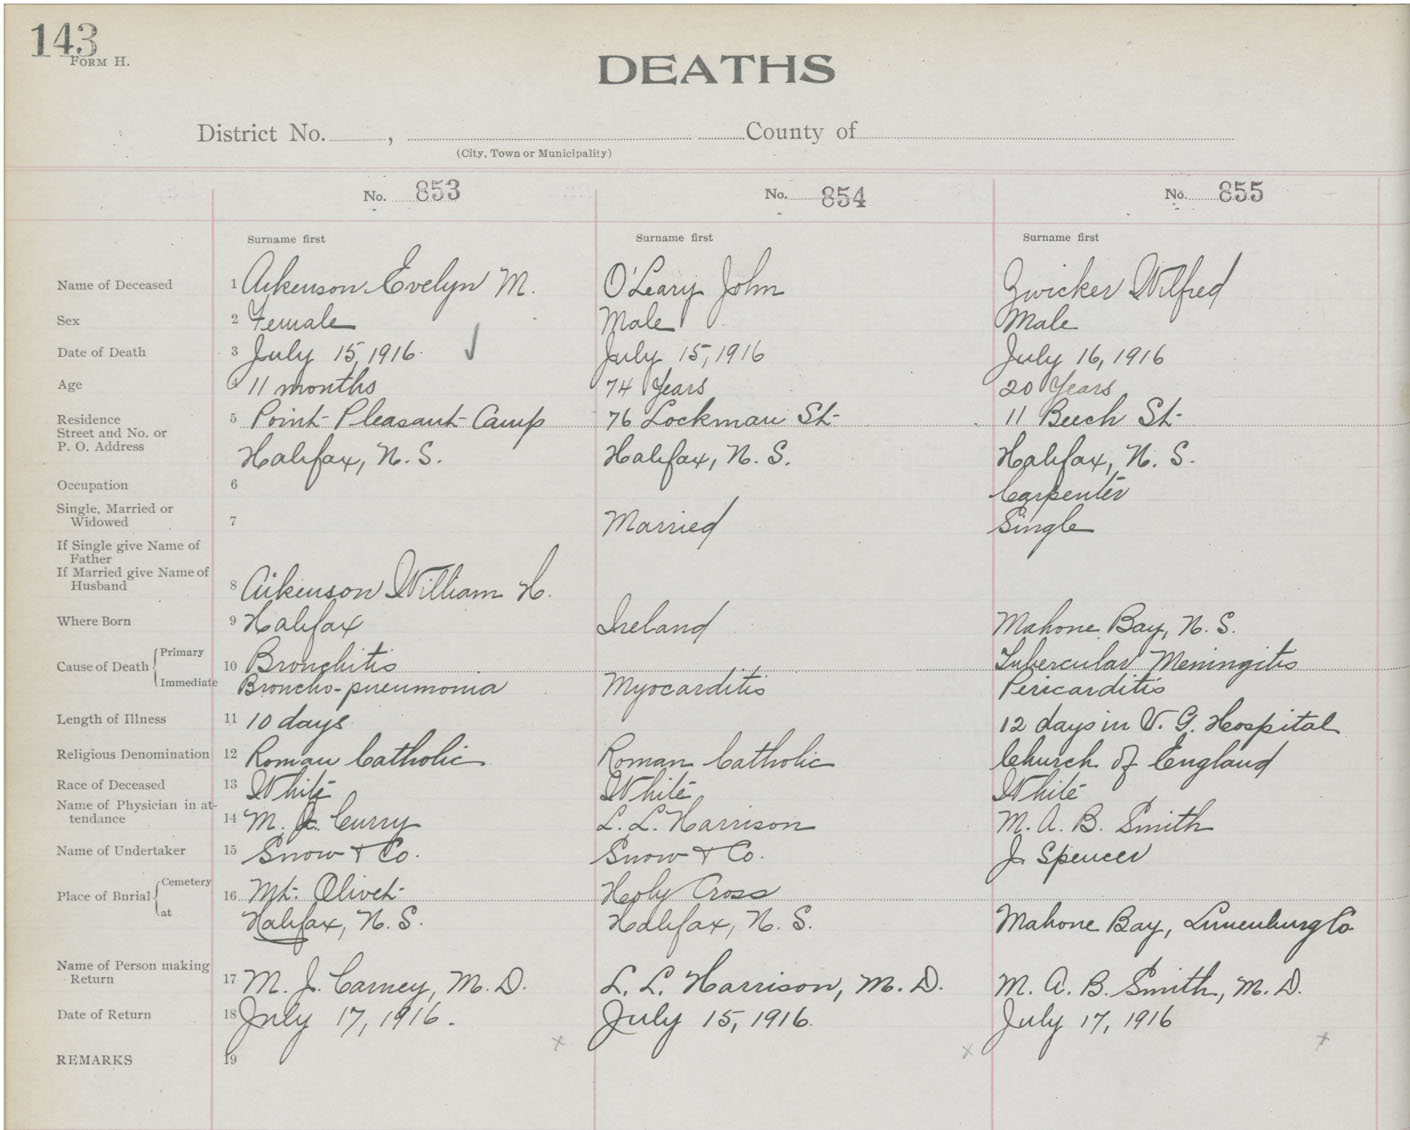 143
FORM H.
DEATHS
District No. , County of
(City, Town or Municipality)
No. 853 No. 854 No. 855
Surname first Surname first Surname first
Name of Deceased 1 Aikenson Evelyn M. O'Leary John Zwicker Wilfred
Sex 2 Female Male Male
Date of Death 3 July 15, 1916 July 15, 1916 July 16, 1916
Age 4 11 months 74 Years 20 Years
Residence 5 Point Pleasant Camp 76 Lockman St 11 Beech St
Street and No. or
P. O. Address Halifax, N. S. Halifax, N. S. Halifax, N. S.
Occupation 6 Carpenter
Single, Married or
Widowed 7 Married Single
If Single give Name of
Father
If Married give Name of
Husband 8 Aikenson William H.
Where Born 9 Halifax Ireland Mahone Bay, N. S.
Cause of Death Primary 10 Bronchitis Tubercular Meningitis
Immediate Broncho-pneumonia Myocarditis Pericarditis
Length of Illness 11 10 days 12 days in V. G. Hospital
Religious Denomination 12 Roman Catholic Roman Catholic Church of England
Race of Deceased 13 White White White
Name of Physician in at-
tendance 14 M. J. Curry L. L. Harrison M. A. B. Smith
Name of Undertaker 15 Snow & Co. Snow & Co. J. Spencer
Place of Burial Cemetery 16 Mt. Olivet Holy Cross
at Halifax, N. S. Halifax, N. S. Mahone Bay, Lunenburg Co
Name of Person making
Return 17 M. J. Carney, M. D. L. L. Harrison, M. D. M. A. B. Smith, M. D.
Date of Return 18 July 17, 1916. July 15, 1916. July 17, 1916
REMARKS 19